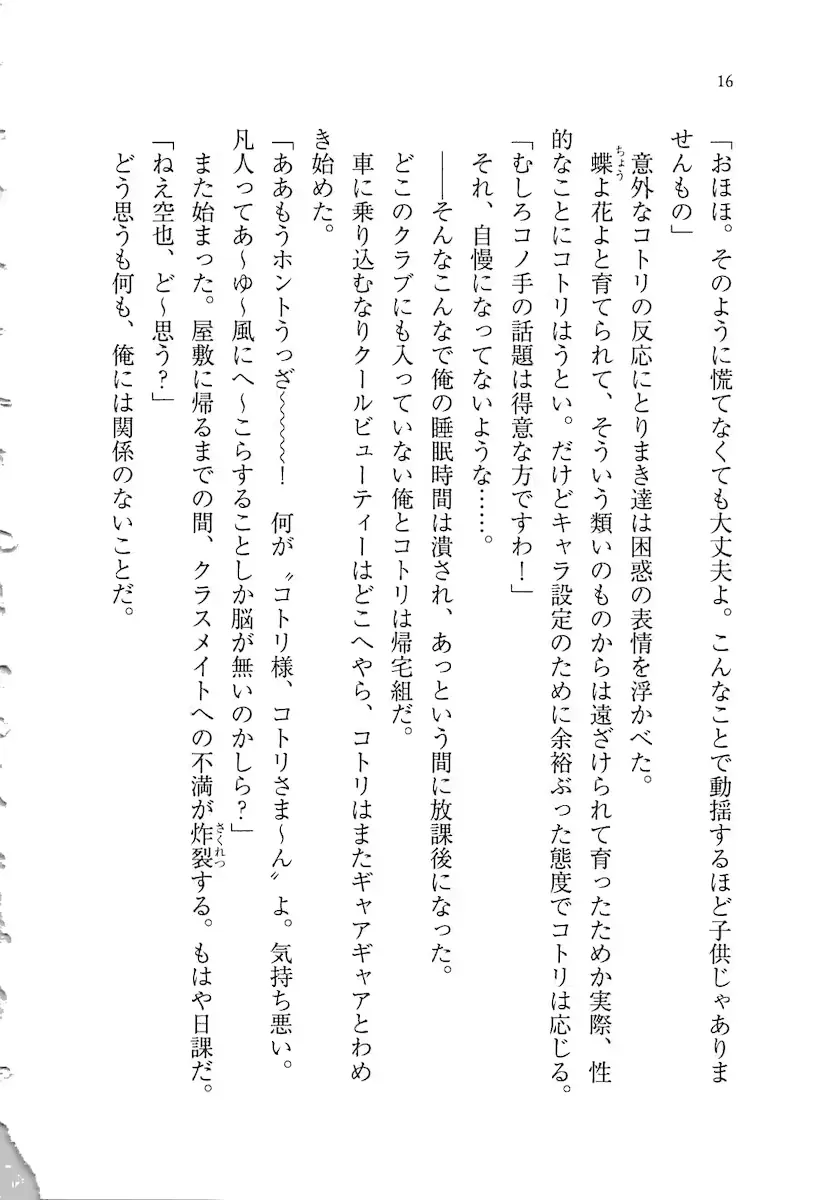 16
「おほほ。そのように慌てなくても大丈夫よ。こんなことで動揺するほど子供じゃありま
せんもの」
意外なコトリの反応にとりまき達は困惑の表情を浮かべた。
蝶よ花よと育てられて、そういう類いのものからは遠ざけられて育ったためか実際、性
ちょう
的なことにコトリはうとい。だけどキャラ設定のために余裕ぶった態度でコトリは応じる。
「むしろコノ手の話題は得意な方ですわ！」
それ、自慢になってないような……。
――そんなこんなで俺の睡眠時間は潰され、あっという間に放課後になった。
どこのクラブにも入っていない俺とコトリは帰宅組だ。
車に乗り込むなりクールビューティーはどこへやら、コトリはまたギャアギャアとわめ
き始めた。
「ああもうホントうっざ～～～～～！　何が〝コトリ様、コトリさま～ん〟よ。気持ち悪い。
凡人ってあ～ゆ～風にへ～こらすることしか脳が無いのかしら？」
また始まった。屋敷に帰るまでの間、クラスメイトへの不満が炸裂する。もはや日課だ。
さくれつ
「ねえ空也、ど～思う？」
どう思うも何も、俺には関係のないことだ。